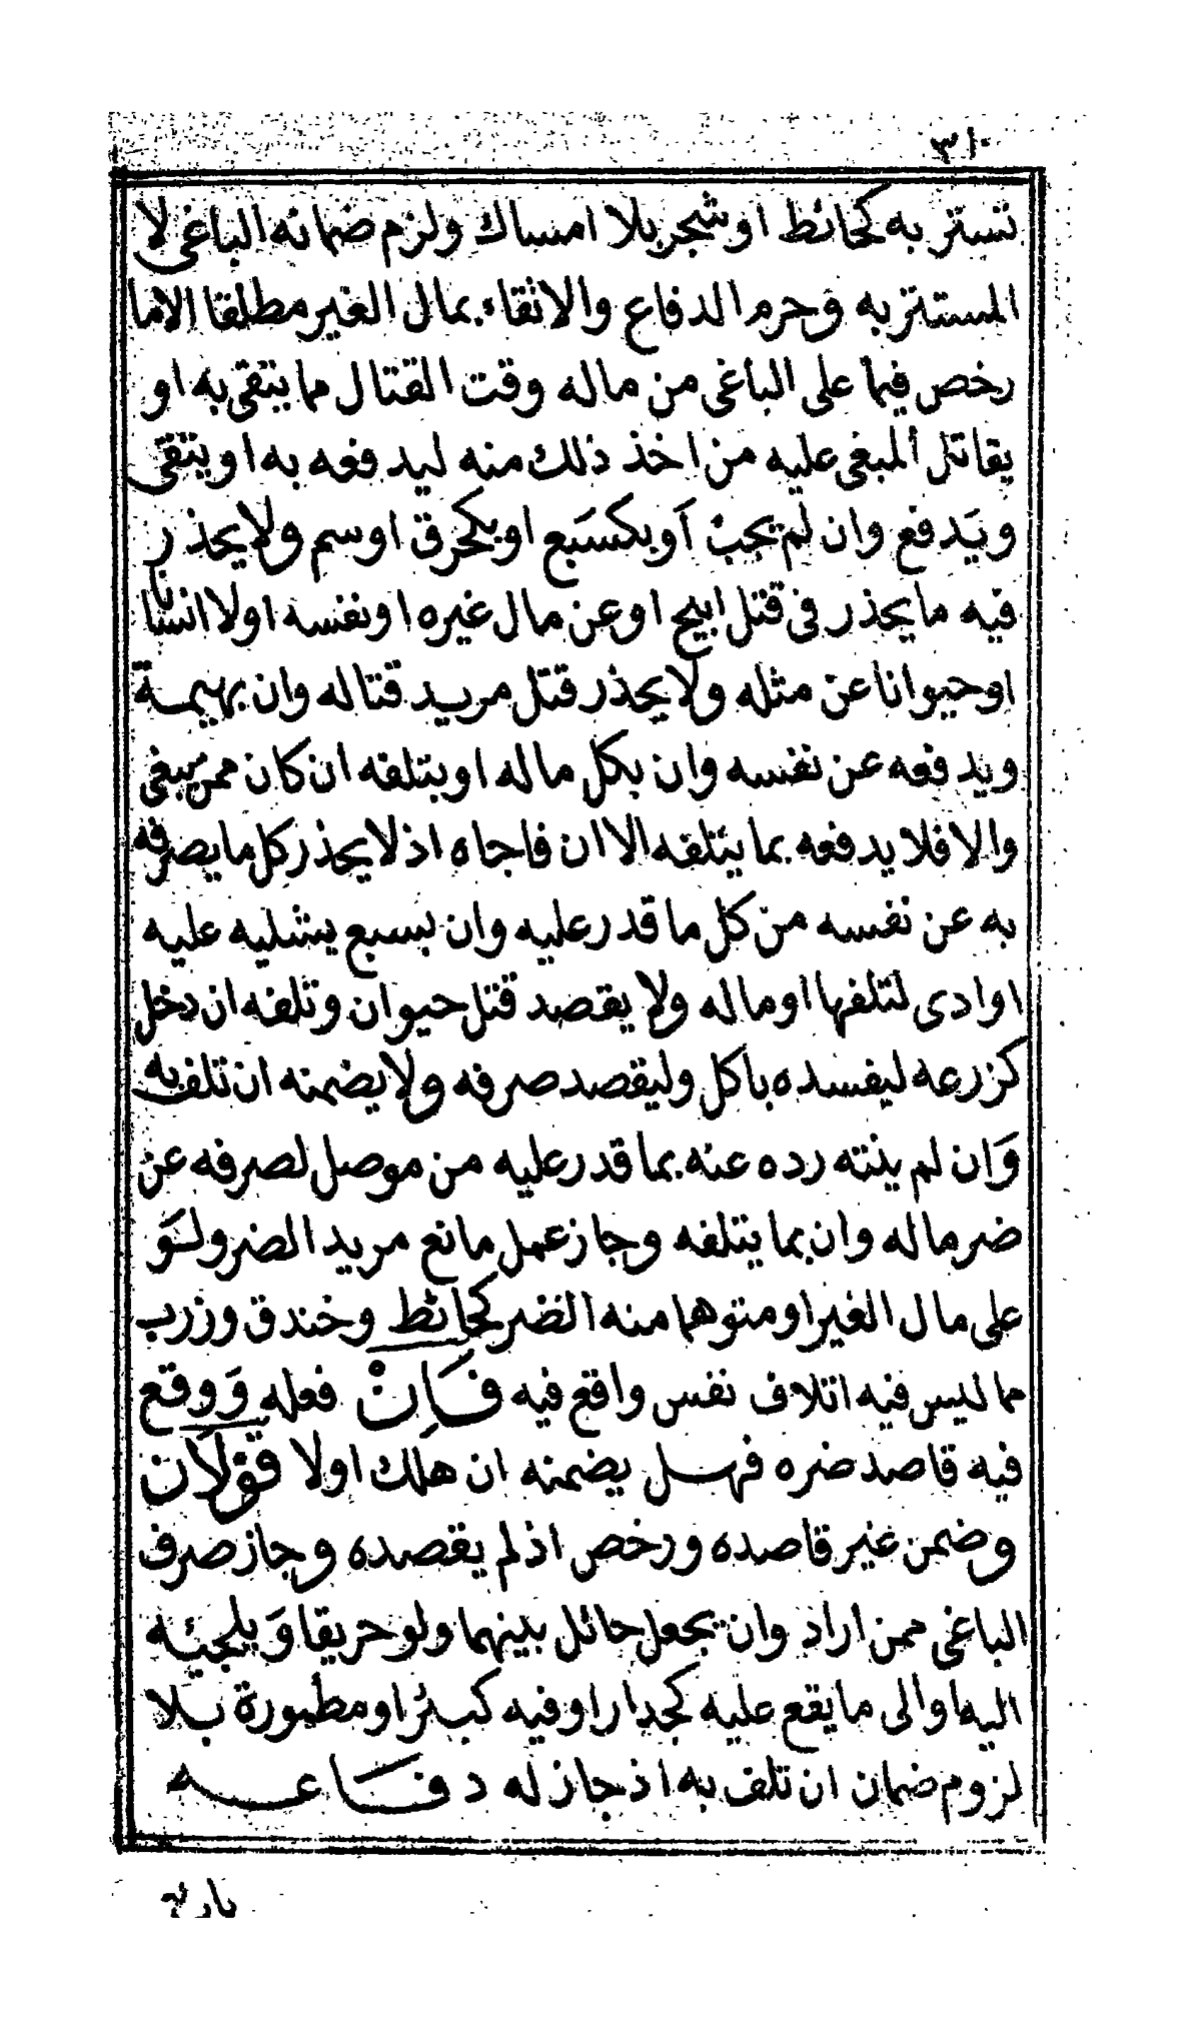 ٣١٠
تستتر به كحائط او شجر بلا امساك ولزم ضمانه الباغى لا
المستتر به وحرم الدفاع والاتقاء بمال الغير مطلقا الا ما
رخص فيما على الباغى من ماله وقت القتال مما يتقى به او
يقاتل المبغى عليه من اخذ ذلك منه ليدفعه به او يتقى
ويدفع وان لم يجب او بكسبع او بكحرق او سم ولا يحذر
فيه ما يحذر فى قتل ابيح او عن مال غيره او نفسه اولا انسانا
او حيوانا عن مثله ولا يحذر قتل مريد قتاله وان بهيمة
ويدفعه عن نفسه وان بكل ماله او بتلفه ان كان ممن يبغى
والا فلا يدفعه بما يتلفه الا ان فاجاه اذ لا يحذر كل ما يصرفه
به عن نفسه من كل ما قدر عليه وان بسبع يشليه عليه
او ادى لتلفها او ماله ولا يقصد قتل حيوان وتلفه ان دخل
كزرعه ليفسده باكل وليقصد صرفه ولا يضمنه ان تلف به
وان لم ينته رده عنه بما قدر عليه من موصل لصرفه عن
ضر ماله وان بما يتلفه وجاز عمل مانع مريد الضر ولو
على مال الغير او متوهما منه الضر كحائط وخندق وزرب
مما ليس فيه اتلاف نفس واقع فيه فان فعله ووقع
فيه قاصد ضره فهل يضمنه ان هلك اولا قولان
وضمن غير قاصده ورخص اذ لم يقصده وجاز صرف
الباغى ممن اراد وان بجعل حائل بينهما ولو حريقا ويلجئه
اليه او الى ما يقع عليه كجدار او فيه كبئر او مطمورة بلا
لزوم ضمان ان تلف به اذ جاز له دفاعه